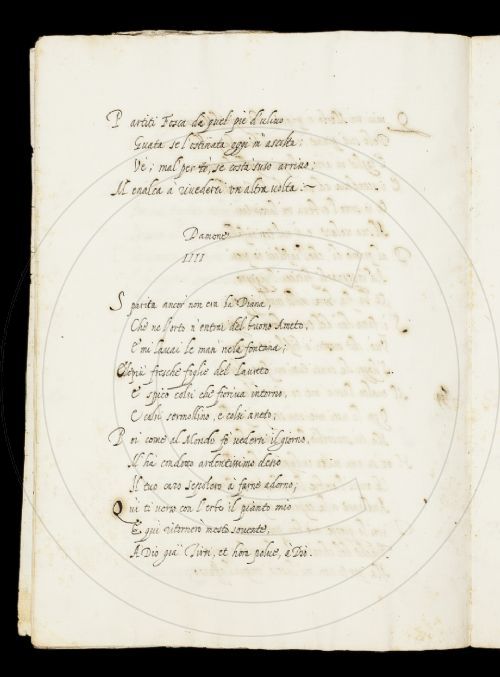 Partiti Fosca da quel piè d'ulivo
Guata se l'ostinata oggi n'ascolta;
Vè; mal per tè, se costà suso arrivo;
Menalca à rivederti un'altra volta:~
Damone
IIII
Sparita ancor non era la Diana,
Che ne l'orto n'entrai del buono Ameto,
E' mi lavai le man' nela fontana;
E le più fresche foglie del Laureto
E spico colsi che fioriva intorno,
E colsi sermollino, e colsi aneto;
Poi come al Mondo fè vedersi il giorno,
M'hà condotto ardentissimo desio
Il tuo caro sepolcro à farne adorno;
Qui ti verso con l'erbe il pianto mio
E qui ritornerò mesto sovente,
A Dio già Tirsi, et hora polve, à Dio.